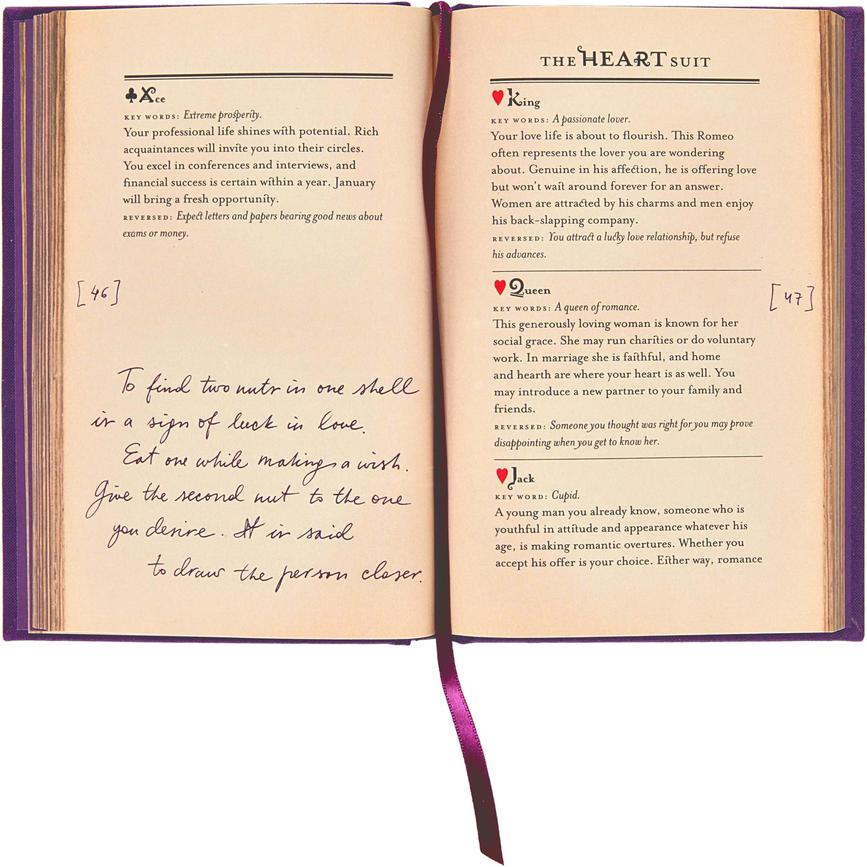 ♣ Ace
KEY WORDS: Extreme prosperity.
Your professional life shines with potential. Rich
acquaintances will invite you into their circles.
You excel in conferences and interviews, and
financial success is certain within a year. January
will bring a fresh opportunity.
REVERSED: Expect letters and papers bearing good news about
exams or money.
[46]
To find two nuts in one shell
is a sign of luck in love.
Eat one while making a wish.
Give the second nut to the one
you desire. It is said
to draw the person closer.
THE HEART SUIT
♥ King
KEY WORDS: A passionate lover.
Your love life is about to flourish. This Romeo
often represents the lover you are wondering
about. Genuine in his affection, he is offering love
but won't wait around forever for an answer.
Women are attracted by his charms and men enjoy
his back-slapping company.
REVERSED: You attract a lucky love relationship, but refuse
his advances.
♥ Queen
KEY WORDS: A queen of romance.
This generously loving woman is known for her
social grace. She may run charities or do voluntary
work. In marriage she is faithful, and home
and hearth are where your heart is as well. You
may introduce a new partner to your family and
friends.
REVERSED: Someone you thought was right for you may prove
disappointing when you get to know her.
[47]
♥ Jack
KEY WORD: Cupid.
A young man you already know, someone who is
youthful in attitude and appearance whatever his
age, is making romantic overtures. Whether you
accept his offer is your choice. Either way, romance